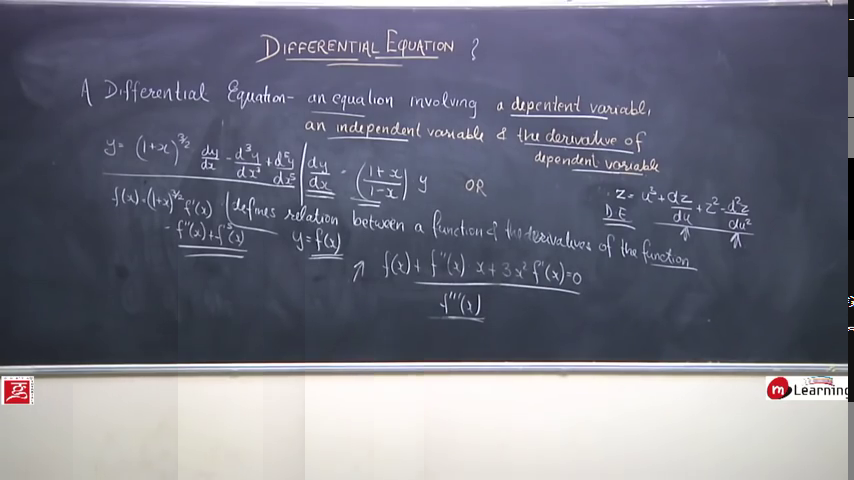 DIFFERENTIAL EQUATION ?
A Differential Equation - an equation involving a depentent variable,
an independent variable & the derivative of
dependent variable
y = (1+x)^3/2 dy/dx - d³y/dx³ + d⁵y/dx⁵ | dy/dx = ((1+x)/(1-x)) y OR
z = u³ + dz/du + z² - d²z/du²
D.E
f(x) = (1+x)^3/2 f'(x) | defines relation between a function & the derivatives of the function
- f''(x) + f⁵(x) y = f(x)
↗ f(x) + f''(x) x + 3x² f'(x) = 0
f''''(x)
mLearning